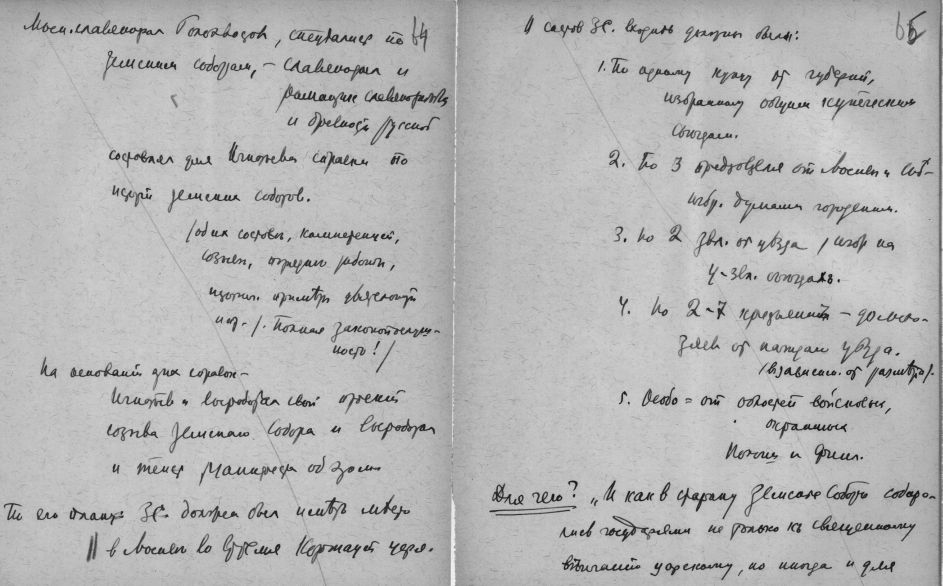 64
Моск. славянофил Голохвастов, специалист по
Земским соборам, – славянофил и
романтик славянофильства
и древности русской
составлял для Игнатьева справки по
истории земских соборов.
/об их составе, компетенции,
созыве, порядке работы,
/. Полная законопослуш-
ность!/
На основании этих справок –
Игнатьев и выработал свой проект
созыва Земского Собора и выработал
и текст Манифеста об этом
По его плану ЗС. должен был иметь место
в Москве во время Коронации царя.
65
В состав ЗС. входить должны были:
1. По одному купцу от губернии,
избранному общим купеческим
съездом.
2. По 3 представителя от Москвы и СПб –
избр. думами городскими.
3. По 2 звл. от уезда /избр на
у-звл. съездах.
4. По 2-7 крестьян – домохо-
зяев от каждого уезда.
/в зависим. от размера/.
5. Особо = от областей войсковых,
окраинных
Польши и Финл.
Для чего? „И как в старину Земские Соборы собира-
лись государями не только къ священному
венчанию царскому, но иногда и для